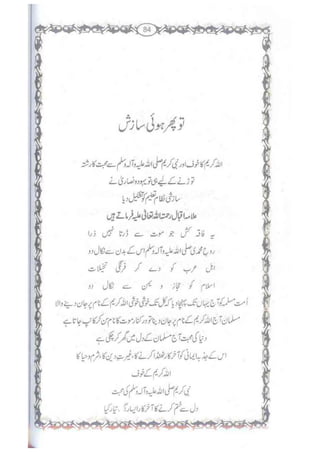 84
تو پھر ہوئی سازش
اللہ کریم کا خوف اور نبی کریم صلی اللہ علیہ وآلہ وسلم سے محبت کا رشتہ
توڑنے کے لیے ہی تو یہود و نصاریٰ نے
سازشی نظام تعلیم کو تشکیل دیا
علامہ اقبال رحمۃ اللہ تعالیٰ علیہ فرماتے ہیں
یہ فاقہ کش جو موت سے ڈرتا نہیں ذرا
روح محمدی صلی اللہ علیہ وآلہ وسلم اس کے بدن سے نکال دو
اہل عرب کو دے کر فرنگی تخیلات
اسلام کو حجاز و یمن سے نکال دو
اُمت مسلمہ کو آج یہاں تک پہنچا دیا کہ کل تک خوشی خوشی اللہ کریم کے نام پر جان دینے والا
مسلمان آج اللہ کریم کے نام پر جان دینا تو درکنار موت کا نام سن کر کانپ جاتا ہے
دنیا کی محبت آج مسلمان کے دل میں گھر کر چکی ہے
اس کے جذبہ ایمانی کو آخر کار ٹھنڈا کرنے کا، غیرتِ دین کا، شرم و حیا کا
اللہ کریم کے خوف
نبی کریم صلی اللہ علیہ وآلہ وسلم کی محبت
دل سے ختم کرنے کا آخر کار ایسا تیار کیا